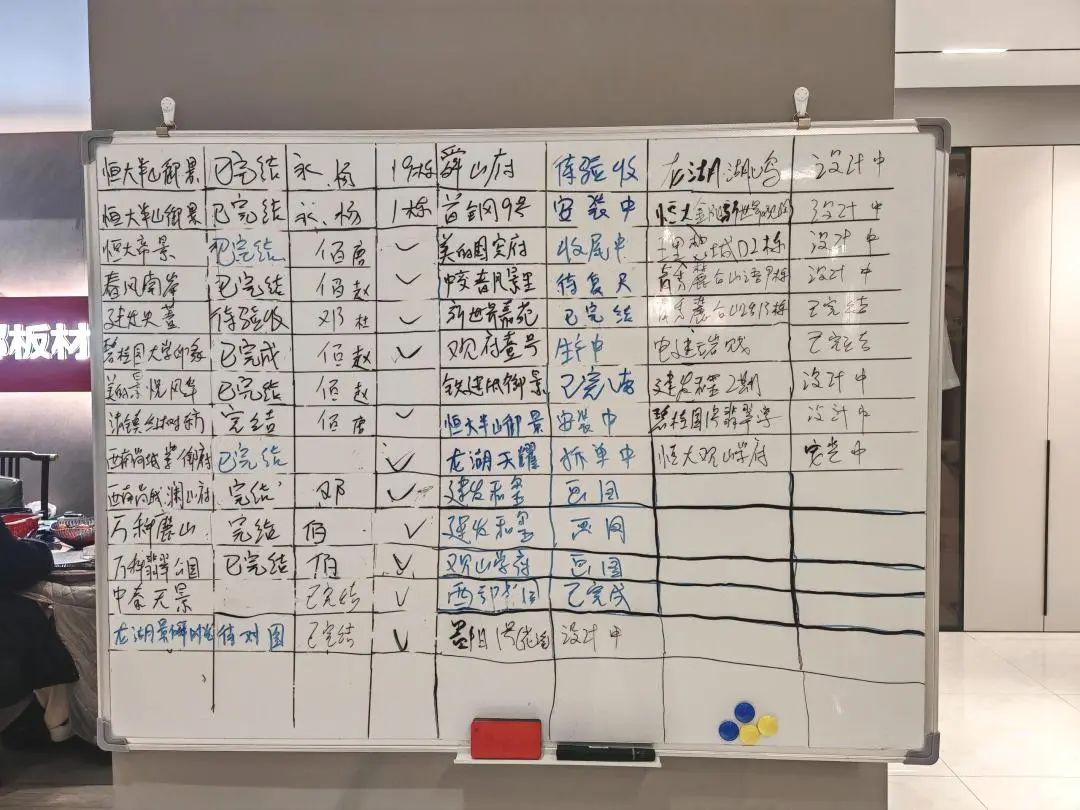 恒大半山御景 已完结 永.杨 19栋 舜山府 待验收 龙湖 设计中
恒大半山御景 已完结 永.杨 1栋 首钢9号 安装中 恒大 设计中
恒大帝景 已完结 佰唐 美的国宾府 收尾中 D2栋 设计中
春风南岸 已完结 佰赵 中交春风景里 待复尺 首秀麓台山语9栋 设计中
建发央著 待验收 邓杜 新世界嘉苑 已完结 麓台山 已完结
碧桂园大学印象 已完成 佰赵 观府壹号 生产中 电建 已完结
已完结 佰赵 铁建城御景 已完结 建发 2期 设计中
清镇红树东方 完结 佰唐 恒大半山御景 安装中 碧桂园 翡翠湾 设计中
西南尚城 已完结 龙湖天曜 拆单中 恒大观山学府 安装中
西南尚城澜山府 完结 邓 建发和玺 画图
万科麓山 完结 佰 建发和玺 画图
万科翡翠公园 已完结 佰 观山学府 画图
中泰天景 已完结 已完成
龙湖景 待对图 已完结 设计中
板材